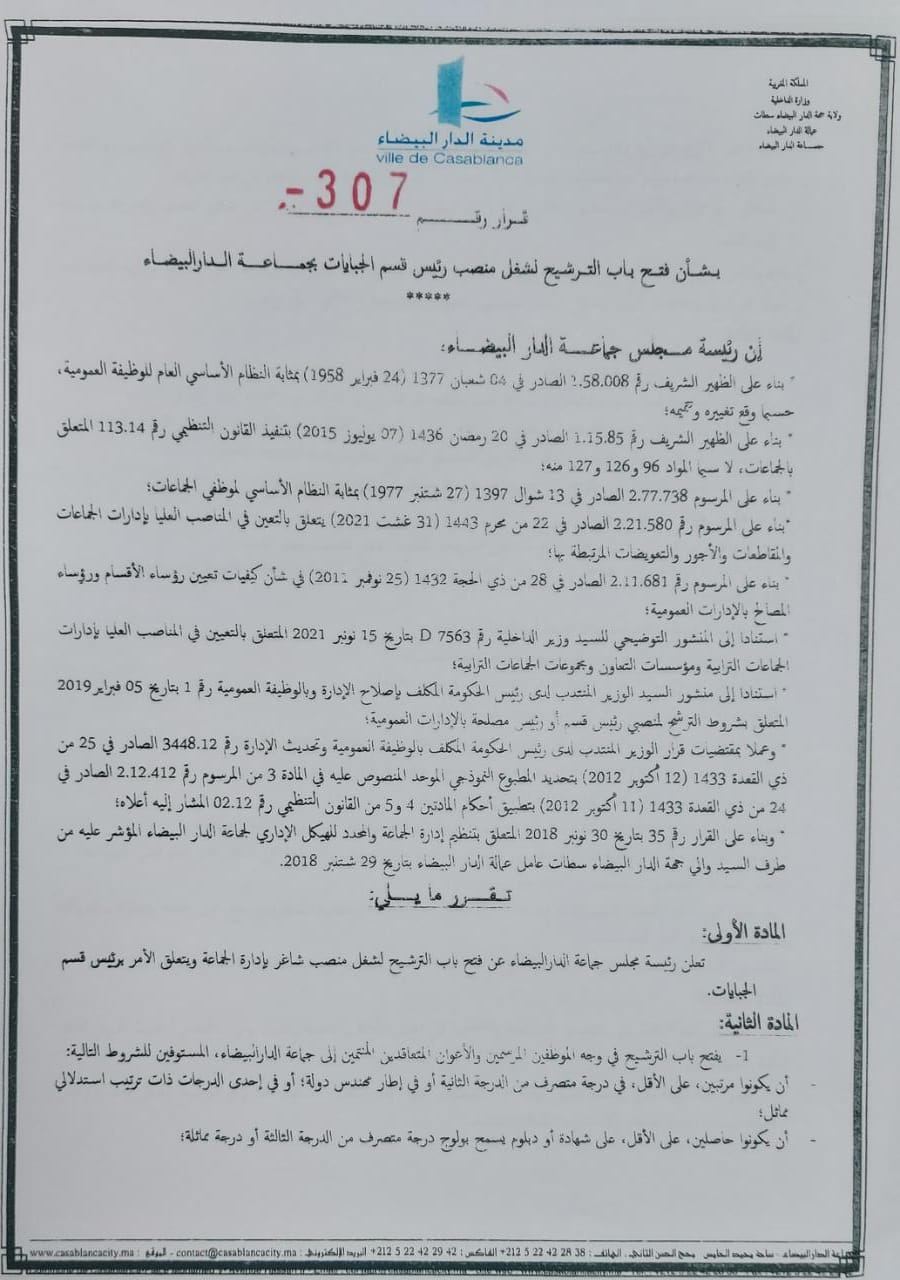 المملكة المغربية
وزارة الداخلية
ولاية جهة الدار البيضاء سطات
عمالة الدار البيضاء
جماعة الدار البيضاء
مدينة الدار البيضاء
ville de Casablanca
قرار رقم 307 -.
بشأن فتح باب الترشيح لشغل منصب رئيس قسم الجبايات بجماعة الدارالبيضاء
*****
إن رئيسة مجلس جماعة الدار البيضاء:
* بناء على الظهير الشريف رقم 1.58.008 الصادر في 04 شعبان 1377 (24 فبراير 1958) بمثابة النظام الأساسي العام للوظيفة العمومية،
حسبما وقع تغييره وتتميمه؛
* بناء على الظهير الشريف رقم 1.15.85 الصادر في 20 رمضان 1436 (07 يوليوز 2015) بتنفيذ القانون التنظيمي رقم 113.14 المتعلق
بالجماعات، لا سيما المواد 96 و126 و127 منه؛
* بناء على المرسوم رقم 2.77.738 الصادر في 13 شوال 1397 (27 شتنبر 1977) بمثابة النظام الأساسي لموظفي الجماعات؛
*بناء على المرسوم رقم 2.21.580 الصادر في 22 من محرم 1443 (31 غشت 2021) يتعلق بالتعين في المناصب العليا بإدارات الجماعات
والمقاطعات والأجور والتعويضات المرتبطة بها؛
* بناء على المرسوم رقم 2.11.681 الصادر في 28 من ذي الحجة 1432 (25 نوفمبر 2011) في شأن كيفيات تعيين رؤساء الأقسام ورؤساء
المصالح بالإدارات العمومية؛
* استنادا إلى المنشور التوضيحي للسيد وزير الداخلية رقم D 7563 بتاريخ 15 نونبر 2021 المتعلق بالتعيين في المناصب العليا بإدارات
الجماعات الترابية ومؤسسات التعاون ومجموعات الجماعات الترابية؛
* استنادا إلى منشور السيد الوزير المنتدب لدى رئيس الحكومة المكلف بإصلاح الإدارة وبالوظيفة العمومية رقم 1 بتاريخ 05 فبراير 2019
المتعلق بشروط الترشح لمنصبي رئيس قسم أو رئيس مصلحة بالإدارات العمومية؛
* وعملا بمقتضيات قرار الوزير المنتدب لدى رئيس الحكومة المكلف بالوظيفة العمومية وتحديث الإدارة رقم 3448.12 الصادر في 25 من
ذي القعدة 1433 (12 أكتوبر 2012) بتحديد المطبوع النموذجي الموحد المنصوص عليه في المادة 3 من المرسوم رقم 2.12.412 الصادر في
24 من ذي القعدة 1433 (11 أكتوبر 2012) بتطبيق أحكام المادتين 4 و5 من القانون التنظيمي رقم 02.12 المشار إليه أعلاه؛
* وبناء على القرار رقم 35 بتاريخ 30 نونبر 2018 المتعلق بتنظيم إدارة الجماعة والمحدد للهيكل الإداري لجماعة الدار البيضاء المؤشر عليه من
طرف السيد والي جهة الدار البيضاء سطات عامل عمالة الدار البيضاء بتاريخ 29 شتنبر 2018.
تقرر ما يلي:
المادة الأولى:
تعلن رئيسة مجلس جماعة الدارالبيضاء عن فتح باب الترشيح لشغل منصب شاغر بإدارة الجماعة ويتعلق الأمر برئيس قسم
الجبايات.
المادة الثانية:
1- يفتح باب الترشيح في وجه الموظفين المرسمين والأعوان المتعاقدين المنتمين إلى جماعة الدارالبيضاء، المستوفين للشروط التالية:
- أن يكونوا مرتبين، على الأقل، في درجة متصرف من الدرجة الثانية أو في إطار مهندس دولة؛ أو في إحدى الدرجات ذات ترتيب استدلالي
مماثل؛
- أن يكونوا حاصلين، على الأقل، على شهادة أو دبلوم يسمح بولوج درجة متصرف من الدرجة الثالثة أو درجة مماثلة؛
جماعة الدار البيضاء - ساحة محمد الخامس - نهج الحسن الثاني - الهاتف : 38 28 42 22 5 212+ الفاكس : 42 29 42 22 5 212+ البريد الإلكتروني : contact@casablancacity.ma - الموقع : www.casablancacity.ma